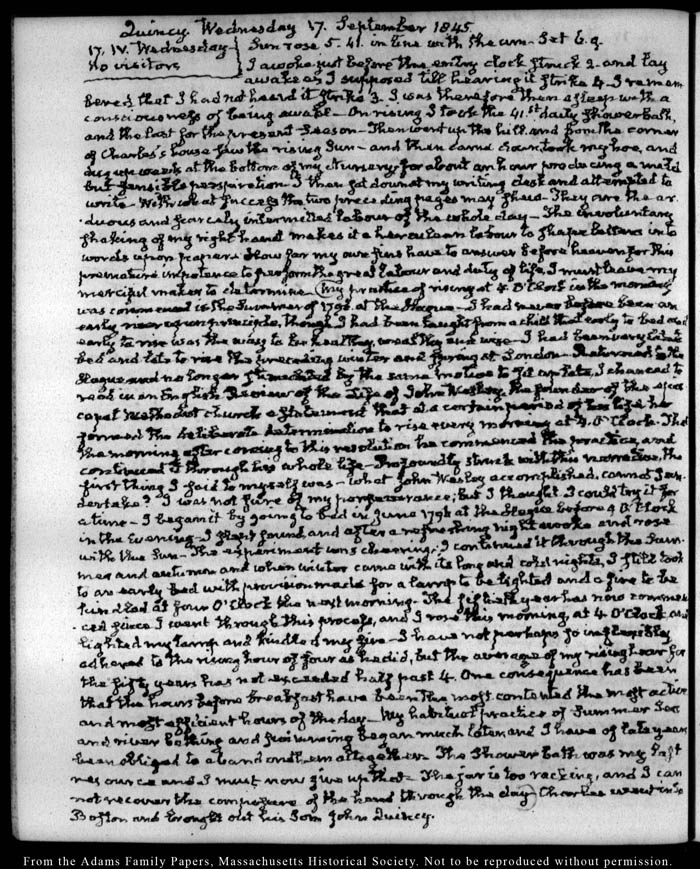 Quincy. Wednesday 17. September 1845.
17. IV. Wednesday Sun rose 5. 41. in line with the urn. Set E. g.
No visitors I awoke just before the entry clock struck 2. and lay
awake as I supposed till hearing it strike 4. I remem
bered that I had not heard it strike 3. I was therefore then asleep with a
consciousness of being awake — On rising I took the 41.st daily shower bath,
and the last for the present season — Then went up the hill and from the corner
of Charles's house saw the rising Sun — and then came down took my hoe, and
dug up weeds at the bottom of my Nursery for about an hour producing a mild
but sensible perspiration. I then sat down at my writing desk and attempted to
write — With what success the two preceding pages may shew — They are the ar
duous and scarcely intermitted labour of the whole day — The involuntary
shaking of my right hand makes it a herculean labour to shape letters into
words upon paper. How far my own sins have to answer before heaven for this
premature impotence to perform the great labour and duty of life, I must leave my
merciful maker to determine. My practice of rising at 4 O'Clock in the morning
was commenced in the Summer of 1796. at the Hague — I had never before been an
early riser upon principle, though I had been taught from a child that early to bed and
early to rise was the way to be healthy, wealthy and wise — I had been very late to
bed and late to rise the preceding winter and spring at London — Returned to the
Hague and no longer stimulated by the same motives to sit up late, I chanced to
read in an English Review of the Life of John Wesley the founder of the Epis
copal Methodist church a statement that at a certain period of his life he
formed the deliberate determination to rise every morning at 4. O'Clock. That
the morning after coming to this resolution he commenced the practice, and
continued it through his whole life — Profoundly struck with this narrative, the
first thing I said to myself was — what John Wesley accomplished, cannot I un
dertake? I was not sure of my perseverance; but I thought I could try it for
a time — I began it by going to bed in June 1796 at the Hague before 9 O'Clock
in the Evening — I slept sound, and after a refreshing night awoke and rose
with the Sun — The experiment was cheering. I continued it through the Sum
mer and autumn and when winter came with its long and cold nights, I still took
to an early bed with provision made for a lamp to be lighted and a fire to be
kindled at four O'Clock the next morning. The fiftieth year has now commen
ced since I went through this process, and I rose this morning, at 4 O'Clock and
lighted my lamp and kindled my fire — I have not perhaps so inflexibly
adhered to the rising hour of four as he did, but the average of my rising hour for
the fifty years has not exceeded half past 4. One consequence has been
that the hours before breakfast have been the most contented the most active
and most efficient hours of the day — My habitual practice of Summer Sea
and river bathing and swimming began much later and I have of late years
been obliged to abandon them altogether. The Shower bath was my last
resource and I must now give up that — The jar is too racking, and I can
not recover the composure of the hand through the day Charles went in to
Boston and brought out his Son John Quincy.
From the Adams Family Papers, Massachusetts Historical Society. Not to be reproduced without permission.